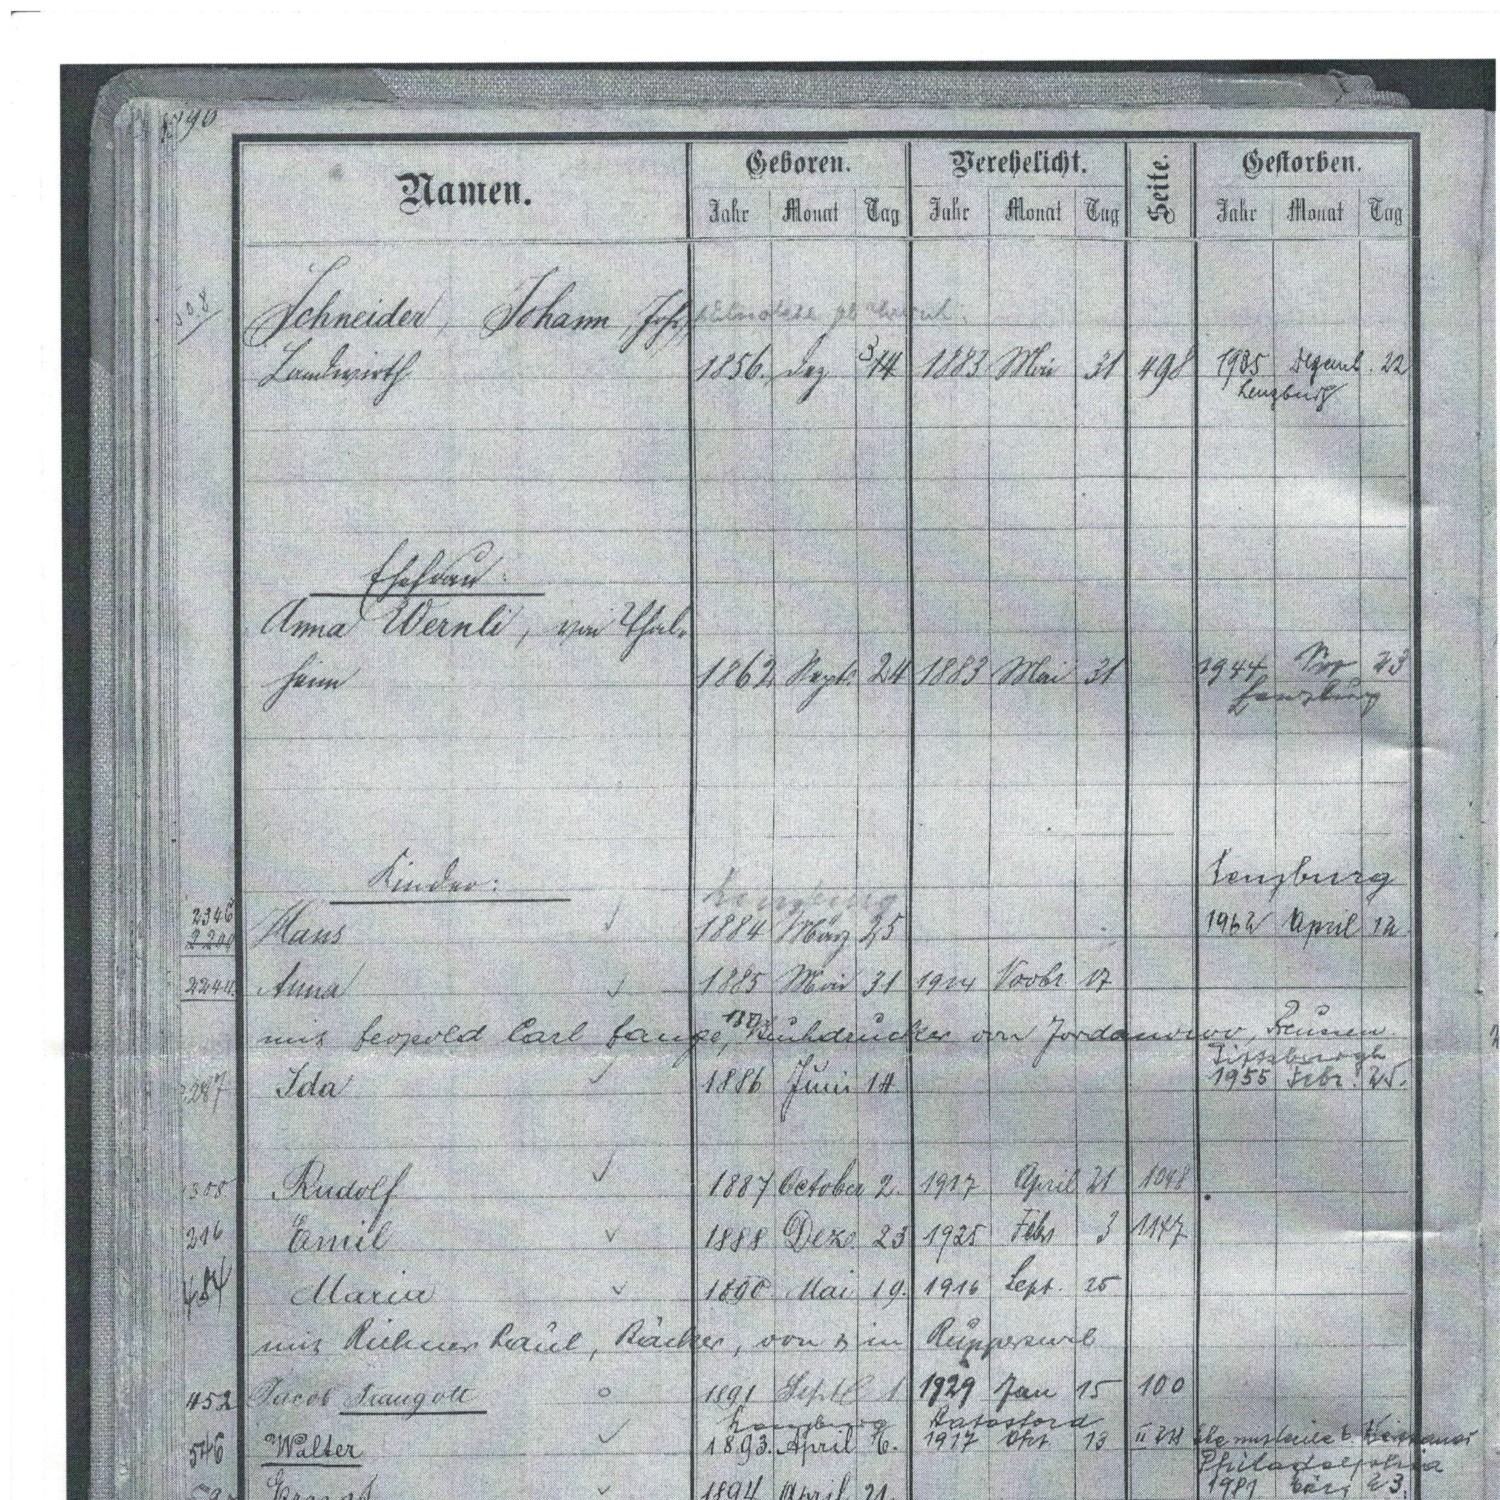 190
Namen. Geboren. Verehelicht. Seite. Gestorben.
Jahr Monat Tag Jahr Monat Tag Jahr Monat Tag
508
Schneider, Johann, Joh.,
Landwirth 1856 Dez 14 1883 Mai 31 498 1935 Dezemb. 22
Lenzburg
Ehefrau:
Anna Wernli, von Thal-
heim 1862 Sept. 24 1883 Mai 31 1944 Nov 23
Lenzburg
Kinder: Lenzburg
Lenzburg
2346
Hans 1884 März 25 1962 April 12
2244 Anna 1885 Mai 31 1914 Novbr 17
mit Leopold Carl Lange, Buchdrucker von Jordanowo, Preussen
Pittsburgh
287 Ida 1886 Juni 14 1955 Febr. 25.
Rudolf 1887 October 2. 1917 April 21 1048
216 Emil 1888 Dez. 23 1925 Febr 3 1147
484 Maria 1890 Mai 19. 1916 Sept. 25
mit Richner Paul, Bäcker, von & in Rupperswil
452 Jacob Traugott 1891 Septb 1 1929 Jan 15 100
Lenzburg
546 Walter 1893. April 6. 1917 Okt 13 II
Philadelphia
Ernst 1894 April 21. 1981 März 23.